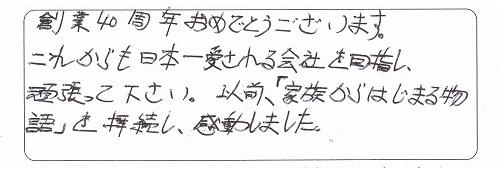 創業40周年おめでとうございます。
これからも日本一愛される会社を目指し、
頑張って下さい。以前、「家族からはじまる物
語」を拝読し、感動しました。